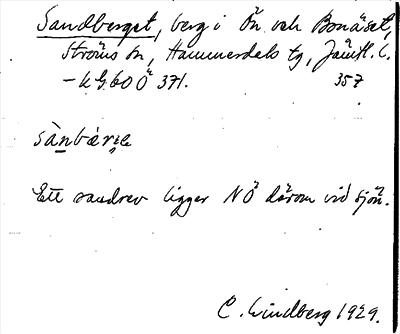 Sandberget, berg i Ön och Bonäset,
Ströms sn, Hammerdals tg, Jämtl. l.
– k G. 60 Ö 371. 357
sànbárie
Ett sandrev ligger NÖ därom vid sjön.
C. Lindberg 1929.